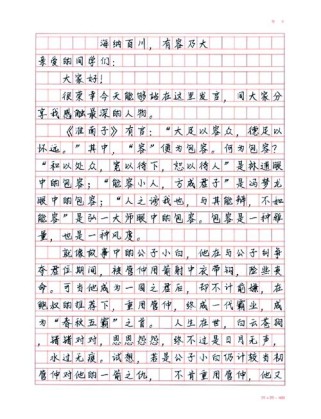 海纳百川，有容乃大
亲爱的同学们：
大家好！
很荣幸今天能够站在这里发言，同大家分
享我感触最深的人物。
《淮南子》有言：“大足以容众，德足以
怀远。”其中，“容”便为包容。何为包容？
“和以处众，宽以待下，恕以待人”是林逋眼
中的包容；“能容小人，方成君子”是冯梦龙
眼中的包容；“人之谤我也，与其能辩，不如
能容”是弘一大师眼中的包容。包容是一种雅
量，也是一种风度。
就像故事中的公子小白，他在与公子纠争
夺君位期间，被管仲用箭射中衣带钩，险些丧
命。可当他成为一国之君后，却不计前嫌，在
鲍叔的推荐下，重用管仲，终成一代霸业，成
为“春秋五霸”之首。人生在世，白云苍狗
，错错对对，恩恩怨怨，终不过是日月无声，
水过无痕。试想，若是公子小白仍计较当初
管仲对他的一箭之仇，不肯重用管仲，他又